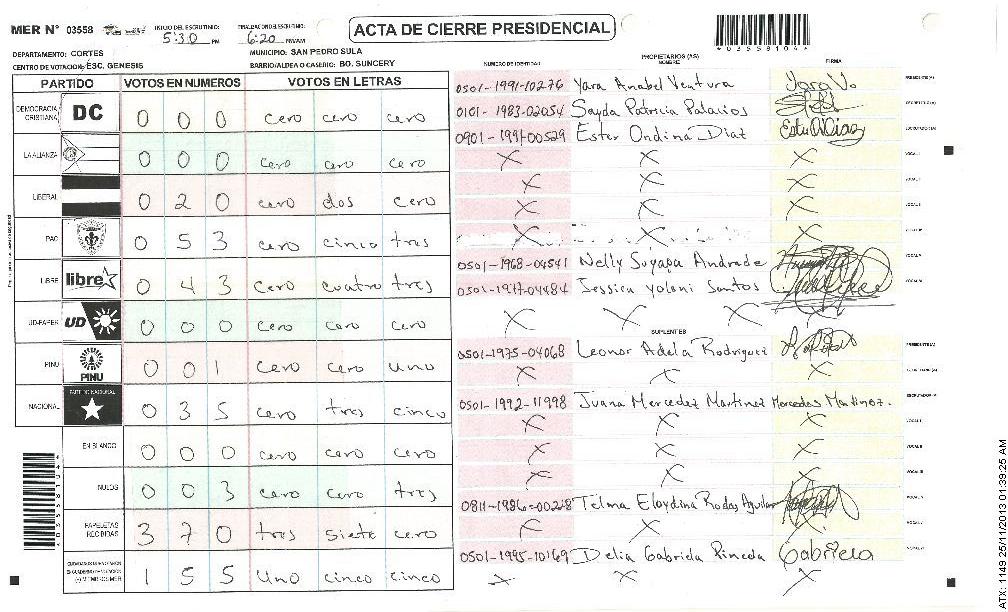 MER Nº 03558 INICIO DEL ESCRUTINIO: 5:30 PM FINALIZACION DEL ESCRUTINIO: 6:20 AM/AM ACTA DE CIERRE PRESIDENCIAL
DEPARTAMENTO: CORTES MUNICIPIO: SAN PEDRO SULA
CENTRO DE VOTACION: ESC. GENESIS BARRIO/ALDEA O CASERIO: BO. SUNCERY
PARTIDO VOTOS EN NUMEROS VOTOS EN LETRAS
DEMOCRACIA CRISTIANA DC 0 0 0 cero cero cero
LA ALIANZA 0 0 0 cero cero cero
LIBERAL 0 2 0 cero dos cero
PAC 0 5 3 cero cinco tres
LIBRE libre 0 4 3 cero cuatro tres
UD-FAPER UD 0 0 0 cero cero cero
PINU PINU 0 0 1 cero cero uno
NACIONAL PARTIDO NACIONAL 0 3 5 cero tres cinco
EN BLANCO 0 0 0 cero cero cero
NULOS 0 0 3 cero cero tres
PAPELETAS RECIBIDAS 3 7 0 tres siete cero
1 5 5 Uno cinco cinco
PROPIETARIOS (AS)
NUMERO DE IDENTIDAD NOMBRE FIRMA
0501-1991-10276 Yara Anabel Ventura Yara V. PRESIDENTE (A)
0101-1983-02054 Sayda Patricia Palacios SECRETARIO (A)
0901-1991-00529 Ester Ondina Diaz Ester O Diaz ESCRUTADOR (A)
X X X VOCAL I
X X X VOCAL II
X X X VOCAL III
X X X
0501-1968-04541 Nelly Suyapa Andrade VOCAL V
0501-1977-04484 Jessica Yoloni Santos
X X X X
SUPLENTES
0501-1975-04068 Leonor Adela Rodriguez PRESIDENTE (A)
X X SECRETARIO (A)
0501-1992-11998 Juana Mercedez Martinez Mercedes Martinez. ESCRUTADOR (A)
X X X VOCAL I
X X X VOCAL II
X X VOCAL III
0811-1986-00228 Telma Eloydina Rodas Aguilar
X X X
0501-1995-10169 Delia Gabriela Pineda Gabriela
X X X
ATX: 1149 25/11/2013 01:39:25 AM